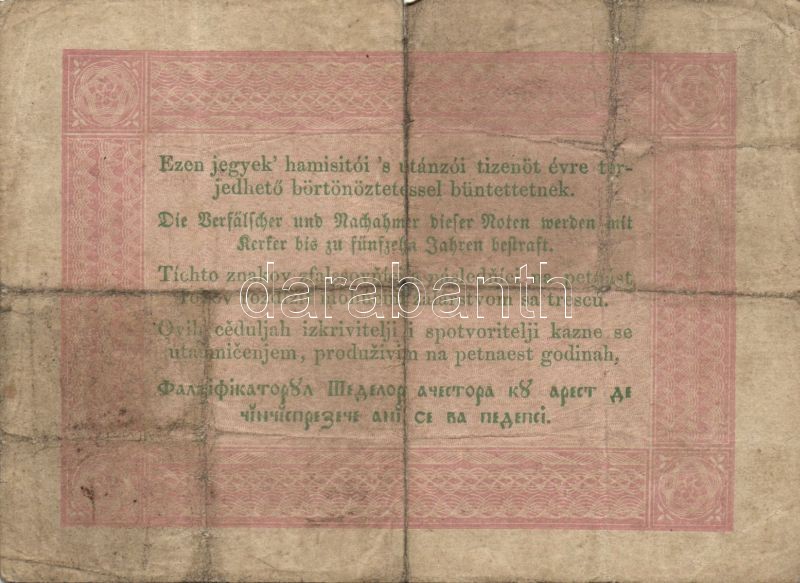 Ezen jegyek' hamisitói 's utánzói tizenöt évre ter-
jedhető börtönöztetéssel büntettetnek.
Die Verfälscher und Nachahmer dieser Noten werden mit
Kerker bis zu fünfzehn Jahren bestraft.
Tíchto znakov petnást
sa trescú.
darabanth
Ovih cěduljah izkrivitelji i spotvoritelji kazne se
utamničenjem, produživim na petnaest godinah,
Фалзіфікаторꙋл Шеделор ачестора кꙋ арест де
чінчіспрезече ані се ва педепсі.